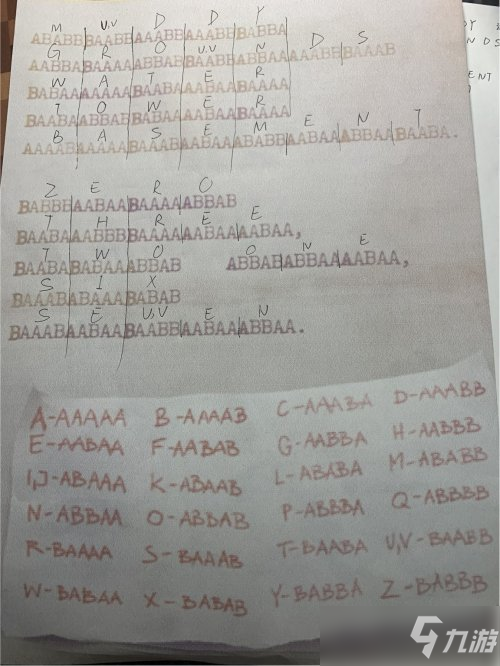 M U,V D D Y
ABABBBAABBAAABBAAABBBABBA
G R O U,V N D S
AABBABAAAAABBABBAABBABBAAAAABBBAAAB
W A T E R
BABAAAAAAABAABAAABAABAAAA
T O W E R
BAABAABBABBABAAAABAABAAAA
B A S E M E N T
AAAABAAAAABAAABAABAAABABBAABAAABBAABAABA.
Z E R O
BABBBAABAABAAAAABBAB
T H R E E
BAABAAABBBBAAAAAABAAAABAA,
T W O O N E
BAABABABAAABBAB ABBABABBAAAABAA,
S I X
BAAABABAAABABAB
S E U,V E N
BAAABAABAABAABBAABAAABBAA.
A-AAAAA B-AAAAB C-AAABA D-AAABB
E-AABAA F-AABAB G-AABBA H-AABBB
I,J-ABAAA K-ABAAB L-ABABA M-ABABB
N-ABBAA O-ABBAB P-ABBBA Q-ABBBB
R-BAAAA S-BAAAB T-BAABA U,V-BAABB
W-BABAA X-BABAB Y-BABBA Z-BABBB
九游